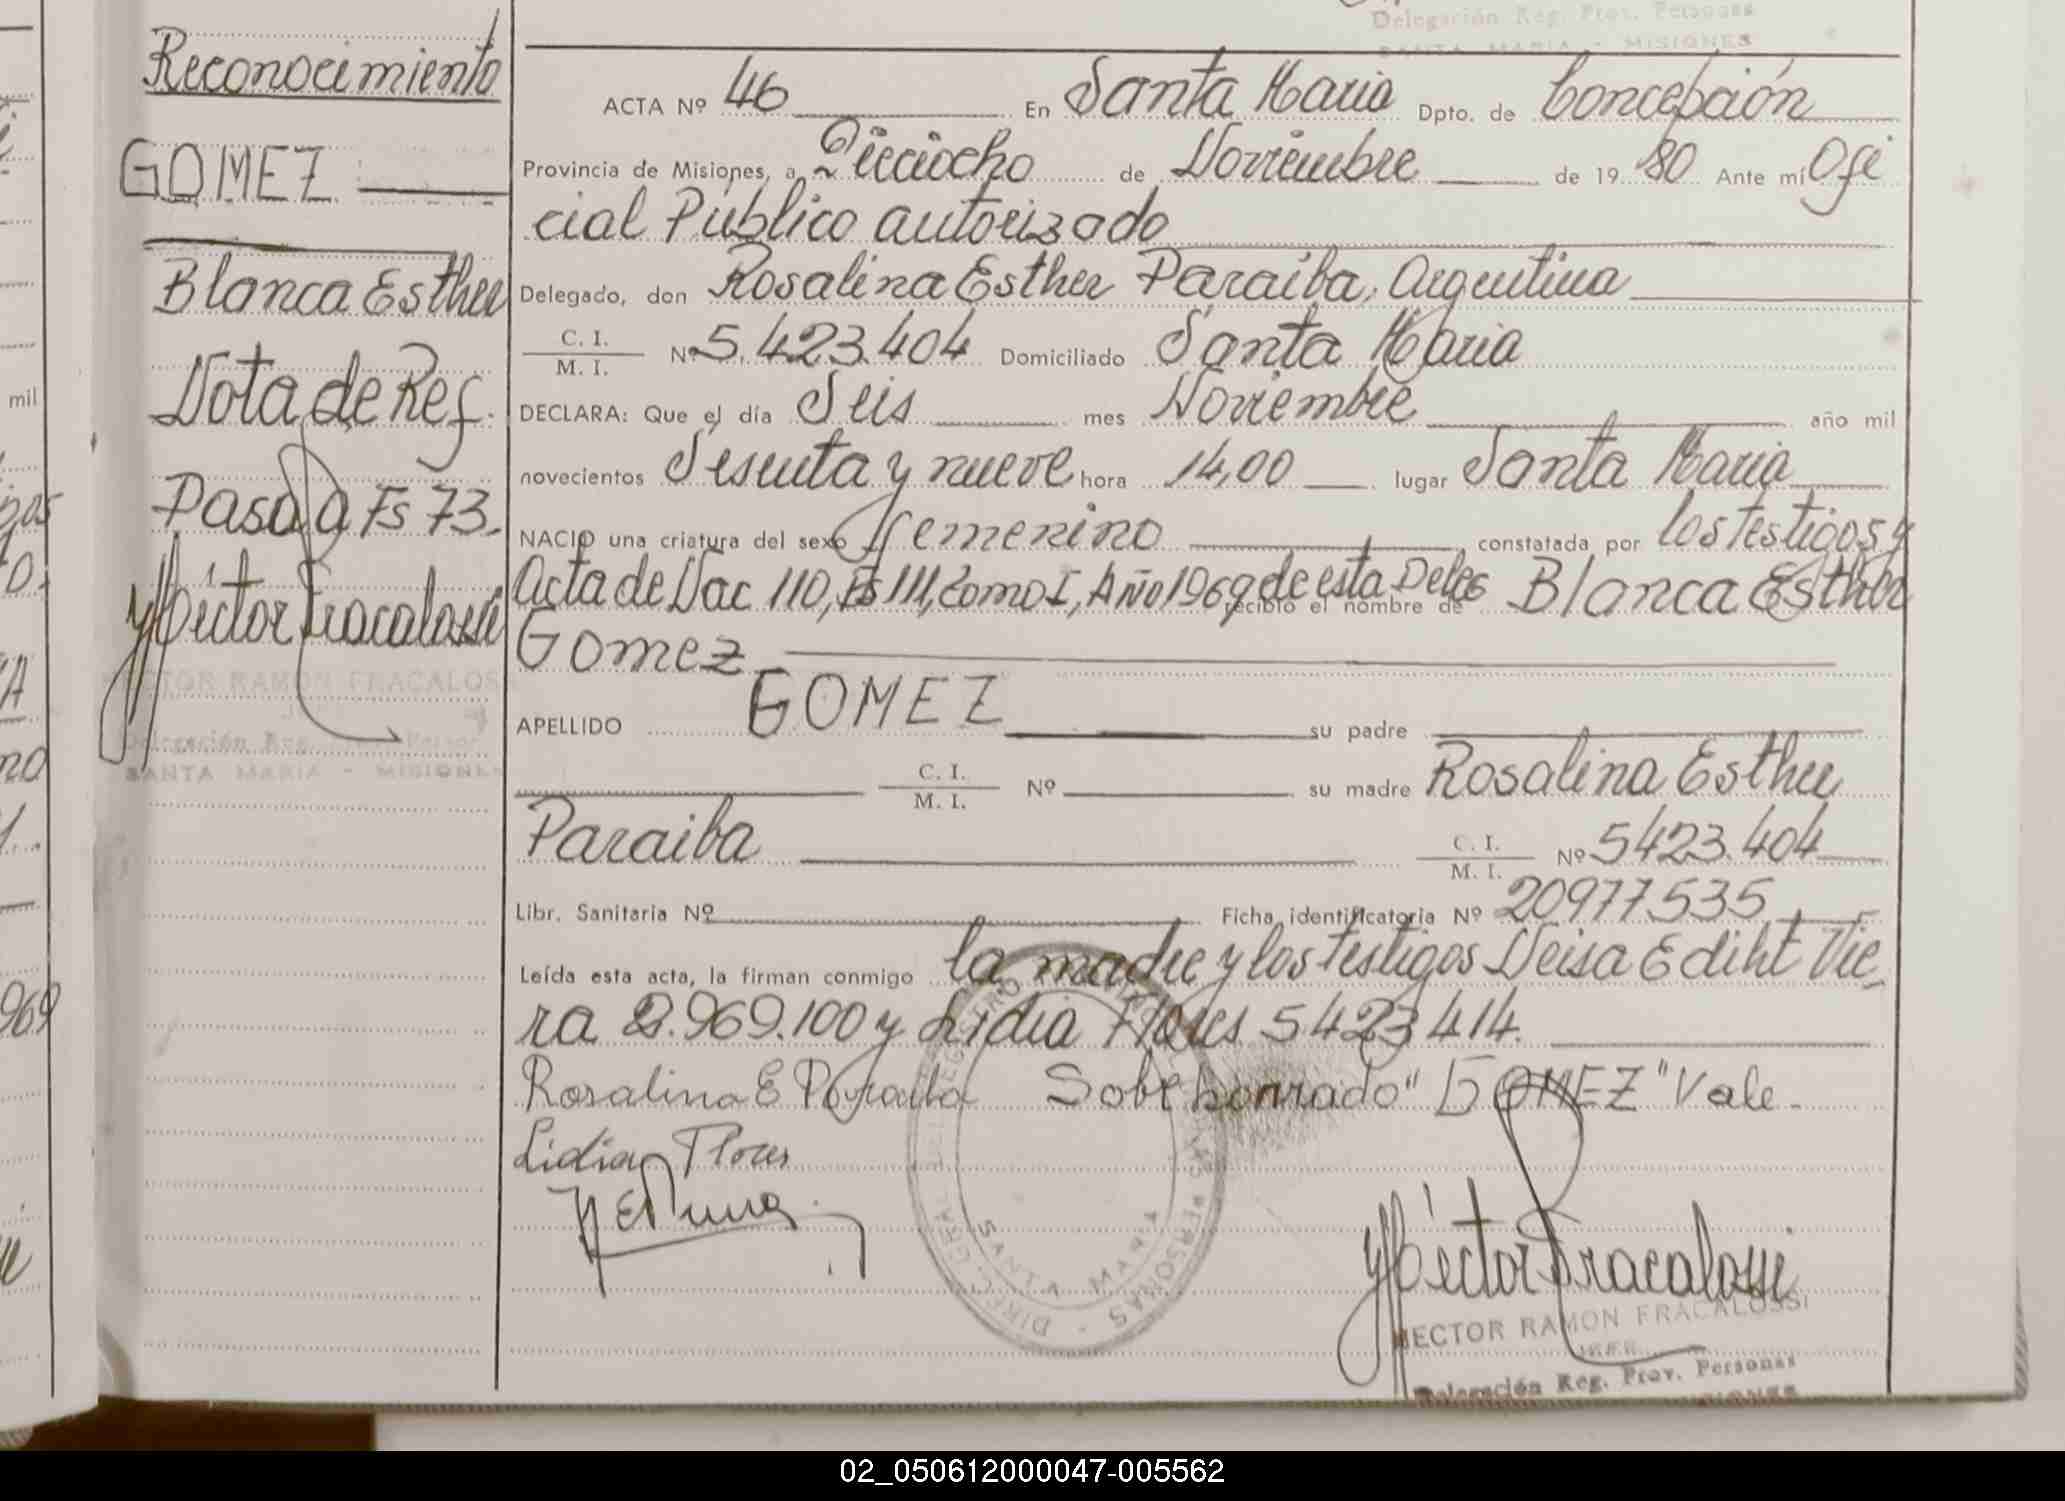 Delegación Reg. Prov. Personas
SANTA MARIA - MISIONES
Reconocimiento
GOMEZ
Blanca Esther
Nota de Ref.
Pasa a Fs 73.
Héctor Fracalossi
HECTOR RAMON FRACALOSSI
Delegación Reg. Prov. Personas
SANTA MARIA - MISIONES
ACTA Nº 46 En Santa Maria Dpto. de Concepción
Provincia de Misiones, a Dieciocho de Noviembre de 19 80 Ante mí Ofi
cial Público autorizado
Delegado, don Rosalina Esther Paraiba, Argentina
C. I. / M. I. Nº 5.423.404 Domiciliado Santa Maria
DECLARA: Que el día Seis mes Noviembre año mil
novecientos Sesenta y nueve hora 14,00 lugar Santa Maria
NACIO una criatura del sexo femenino constatada por los testigos y
Acta de Nac 110, Fs 111, Tomo I, Año 1969 de esta Deleg recibió el nombre de Blanca Esther
Gomez
APELLIDO GOMEZ su padre
C. I. / M. I. Nº su madre Rosalina Esther
Paraiba C. I. / M. I. Nº 5423.404
Libr. Sanitaria Nº Ficha identificatoria Nº 20977.535
Leída esta acta, la firman conmigo la madre y los testigos Neisa Ediht Vie
ra 2.969.100 y Lidia Flores 5423414.
Rosalina E Paraiba Sobrehonrado "GOMEZ" Vale
Lidia Flores
Héctor Fracalossi
HECTOR RAMON FRACALOSSI
JEFE
Delegación Reg. Prov. Personas
MISIONES
DIREC. GRAL. DEL REGISTRO PERSONAS
SANTA MARIA
mil
969
02_050612000047-005562